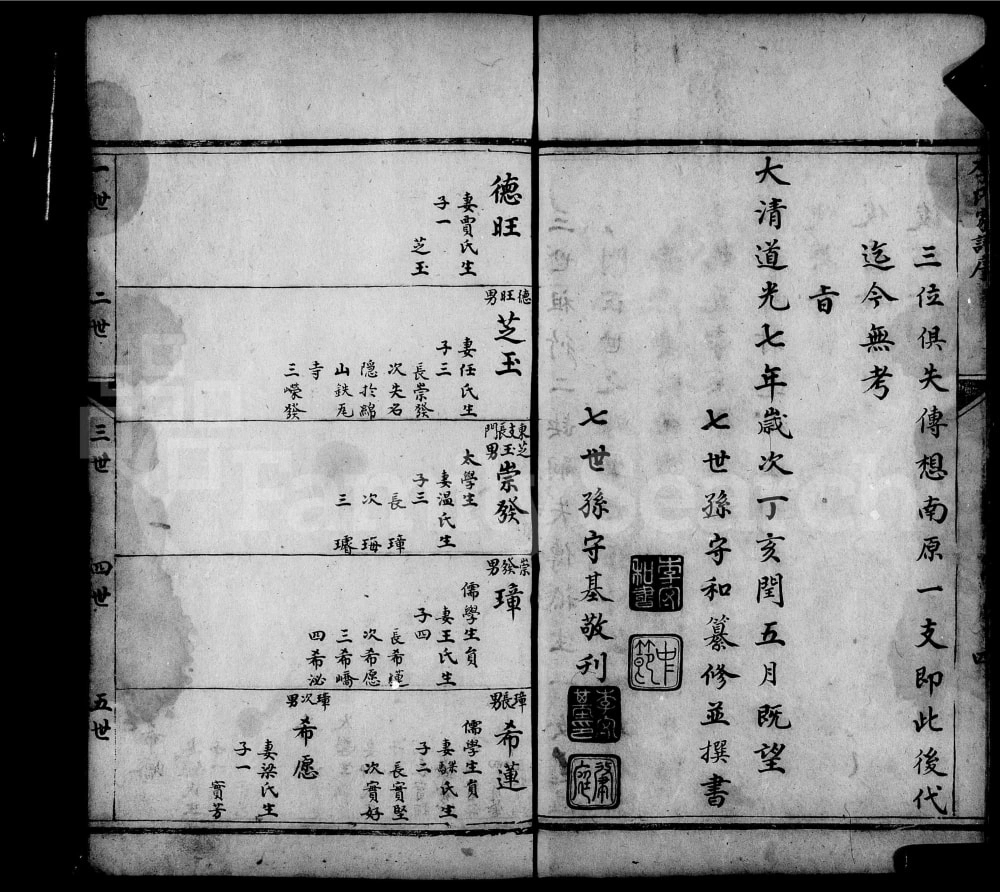 李氏家譜序
三位俱失傳想南原一支即此後代
迄今無考
旹
大清道光七年歲次丁亥閏五月既望
七世孫守和纂修並撰書
七世孫守基敬刊
李守和書
中節
李守基印
一世
德旺
妻賈氏生
子一
芝玉
二世
德旺男
芝玉
妻任氏生
子三
長崇發
次失名
隱於綿
山鉄瓦
寺
三嶸發
三世
東支長門
芝玉男
崇發
太學生
妻温氏生
子三
長璋
次珻
三璿
四世
崇發男
璋
儒學生員
妻王氏生
子四
長希蓮
次希愿
三希嶠
四希泌
五世
璋長男
希蓮
儒學生員
妻縣氏生
子二
長實堅
次實好
璋次男
希愿
妻梁氏生
子一
實芳